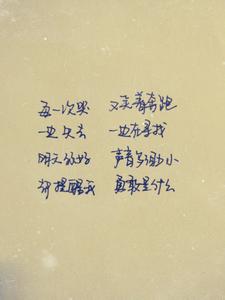 每一次哭 又笑着奔跑
一边失去 一边在寻找
明天你好 声音多渺小
却提醒我 勇敢是什么